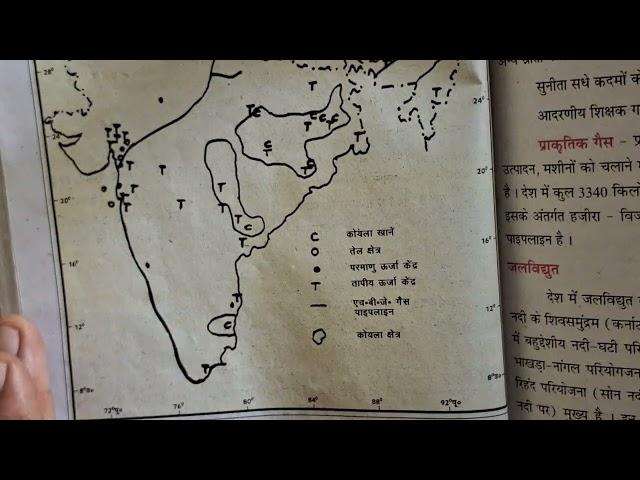 28°
24°
20°
16°
12°
8°उ०
24°
20°
16°
12°
8°उ०
72°पू०
76°
80°
84°
88°
92°पू०
C कोयला खाने
तेल क्षेत्र
परमाणु ऊर्जा केंद्र
T तापीय ऊर्जा केंद्र
एच॰बी॰जे॰ गैस
पाइपलाइन
कोयला क्षेत्र
सुनीता सधे कदमों
आदरणीय शिक्षक
प्राकृतिक गैस –
उत्पादन, मशीनों को चलाने
है । देश में कुल 3340
इसके अंतर्गत हजीरा –
पाइपलाइन है ।
जलविद्युत
देश में जलविद्युत
नदी के शिवसमुंद्रम
में बहुद्देशीय नदी-घटी
भाखड़ा-नांगल
रिहंद परियोजना (सोन
नदी पर) मुख्य है ।